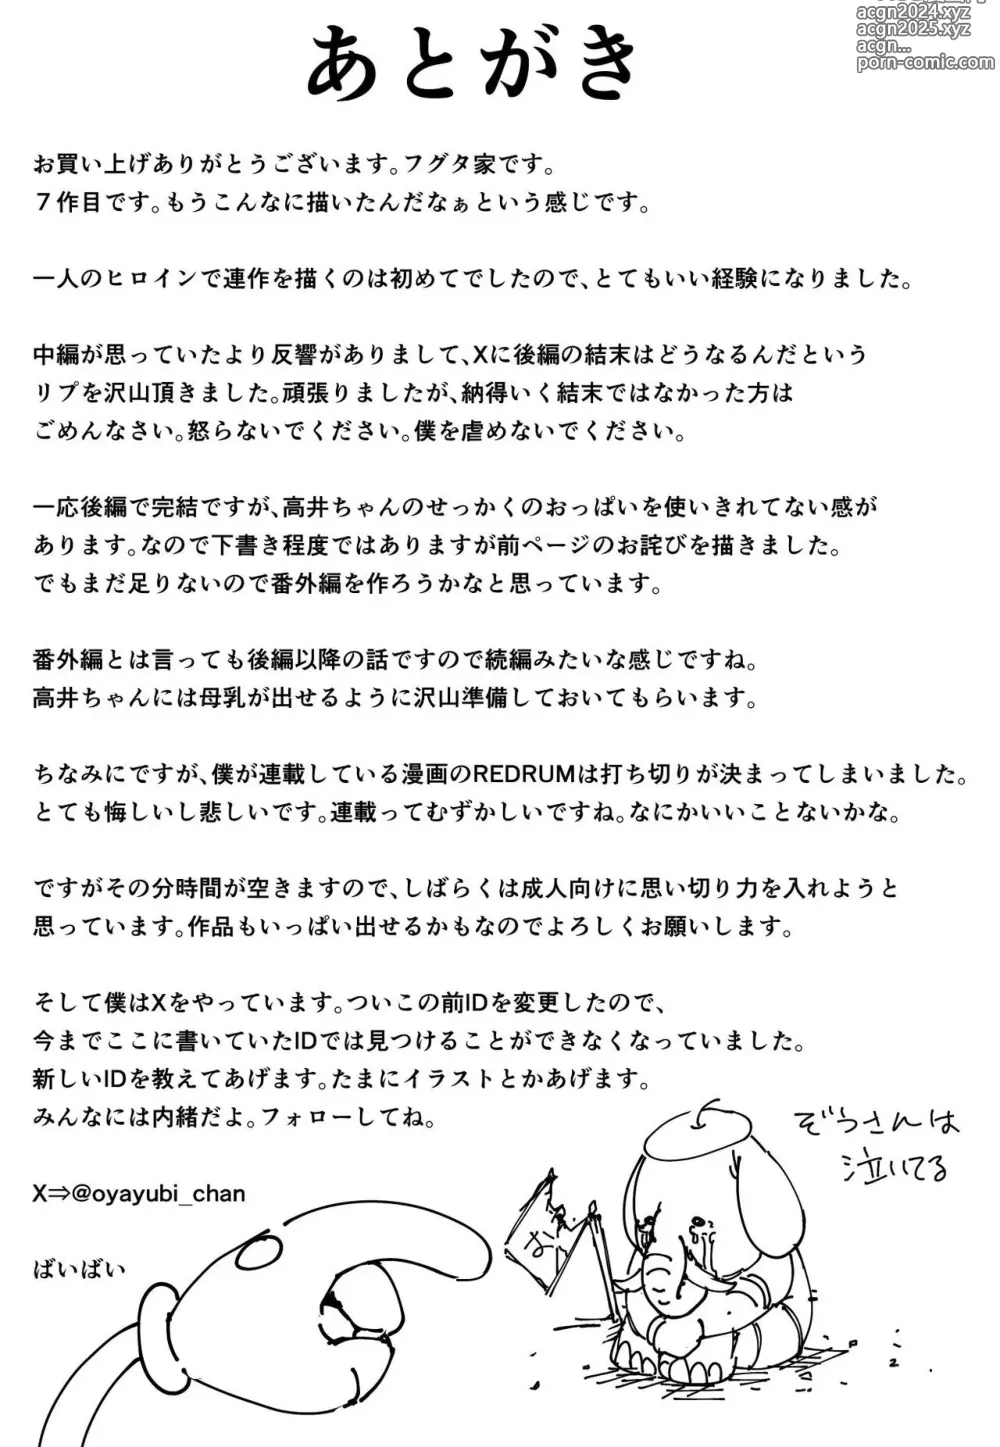 acgn2024.xyz
acgn2025.xyz
acgn...
porn-comic.com
あとがき
お買い上げありがとうございます。フグタ家です。
７作目です。もうこんなに描いたんだなぁという感じです。
一人のヒロインで連作を描くのは初めてでしたので、とてもいい経験になりました。
中編が思っていたより反響がありまして、Xに後編の結末はどうなるんだという
リプを沢山頂きました。頑張りましたが、納得いく結末ではなかった方は
ごめんなさい。怒らないでください。僕を虐めないでください。
一応後編で完結ですが、高井ちゃんのせっかくのおっぱいを使いきれてない感が
あります。なので下書き程度ではありますが前ページのお詫びを描きました。
でもまだ足りないので番外編を作ろうかなと思っています。
番外編とは言っても後編以降の話ですので続編みたいな感じですね。
高井ちゃんには母乳が出せるように沢山準備しておいてもらいます。
ちなみにですが、僕が連載している漫画のREDRUMは打ち切りが決まってしまいました。
とても悔しいし悲しいです。連載ってむずかしいですね。なにかいいことないかな。
ですがその分時間が空きますので、しばらくは成人向けに思い切り力を入れようと
思っています。作品もいっぱい出せるかもなのでよろしくお願いします。
そして僕はXをやっています。ついこの前IDを変更したので、
今までここに書いていたIDでは見つけることができなくなっていました。
新しいIDを教えてあげます。たまにイラストとかあげます。
みんなには内緒だよ。フォローしてね。
ぞうさんは
泣いてる
X⇒@oyayubi_chan
ばいばい